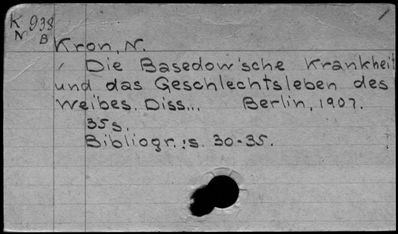 K 938
N B
Kron, N.
Die Basedow'sche Krankheit
und das Geschlechtsleben des
Weibes. Diss... Berlin, 1907.
35s.
Bibliogr.:s. 30-35.